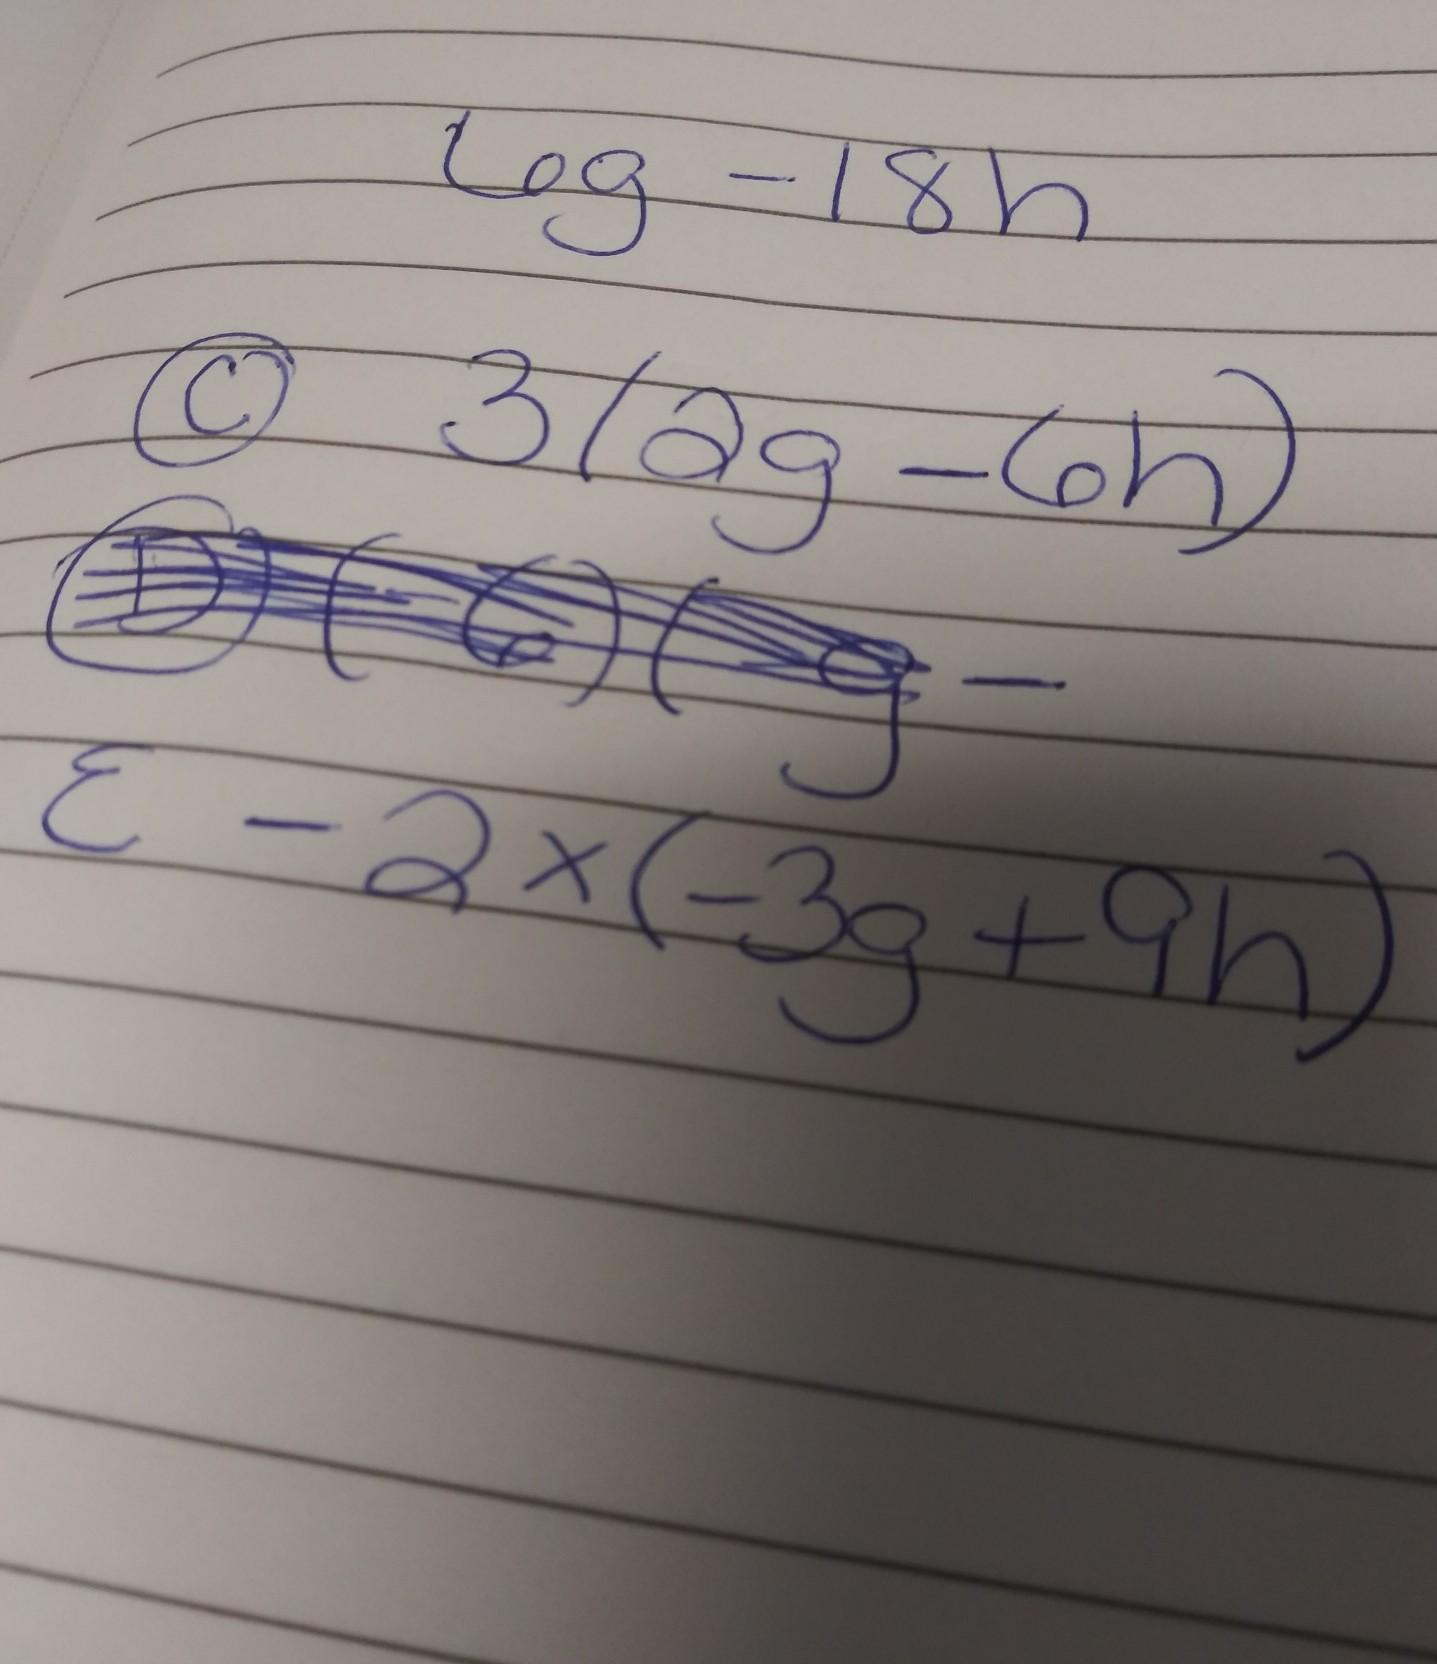 6g - 18h
C 3(2g - 6h)
D (6)(g -
E - 2 × (-3g + 9h)